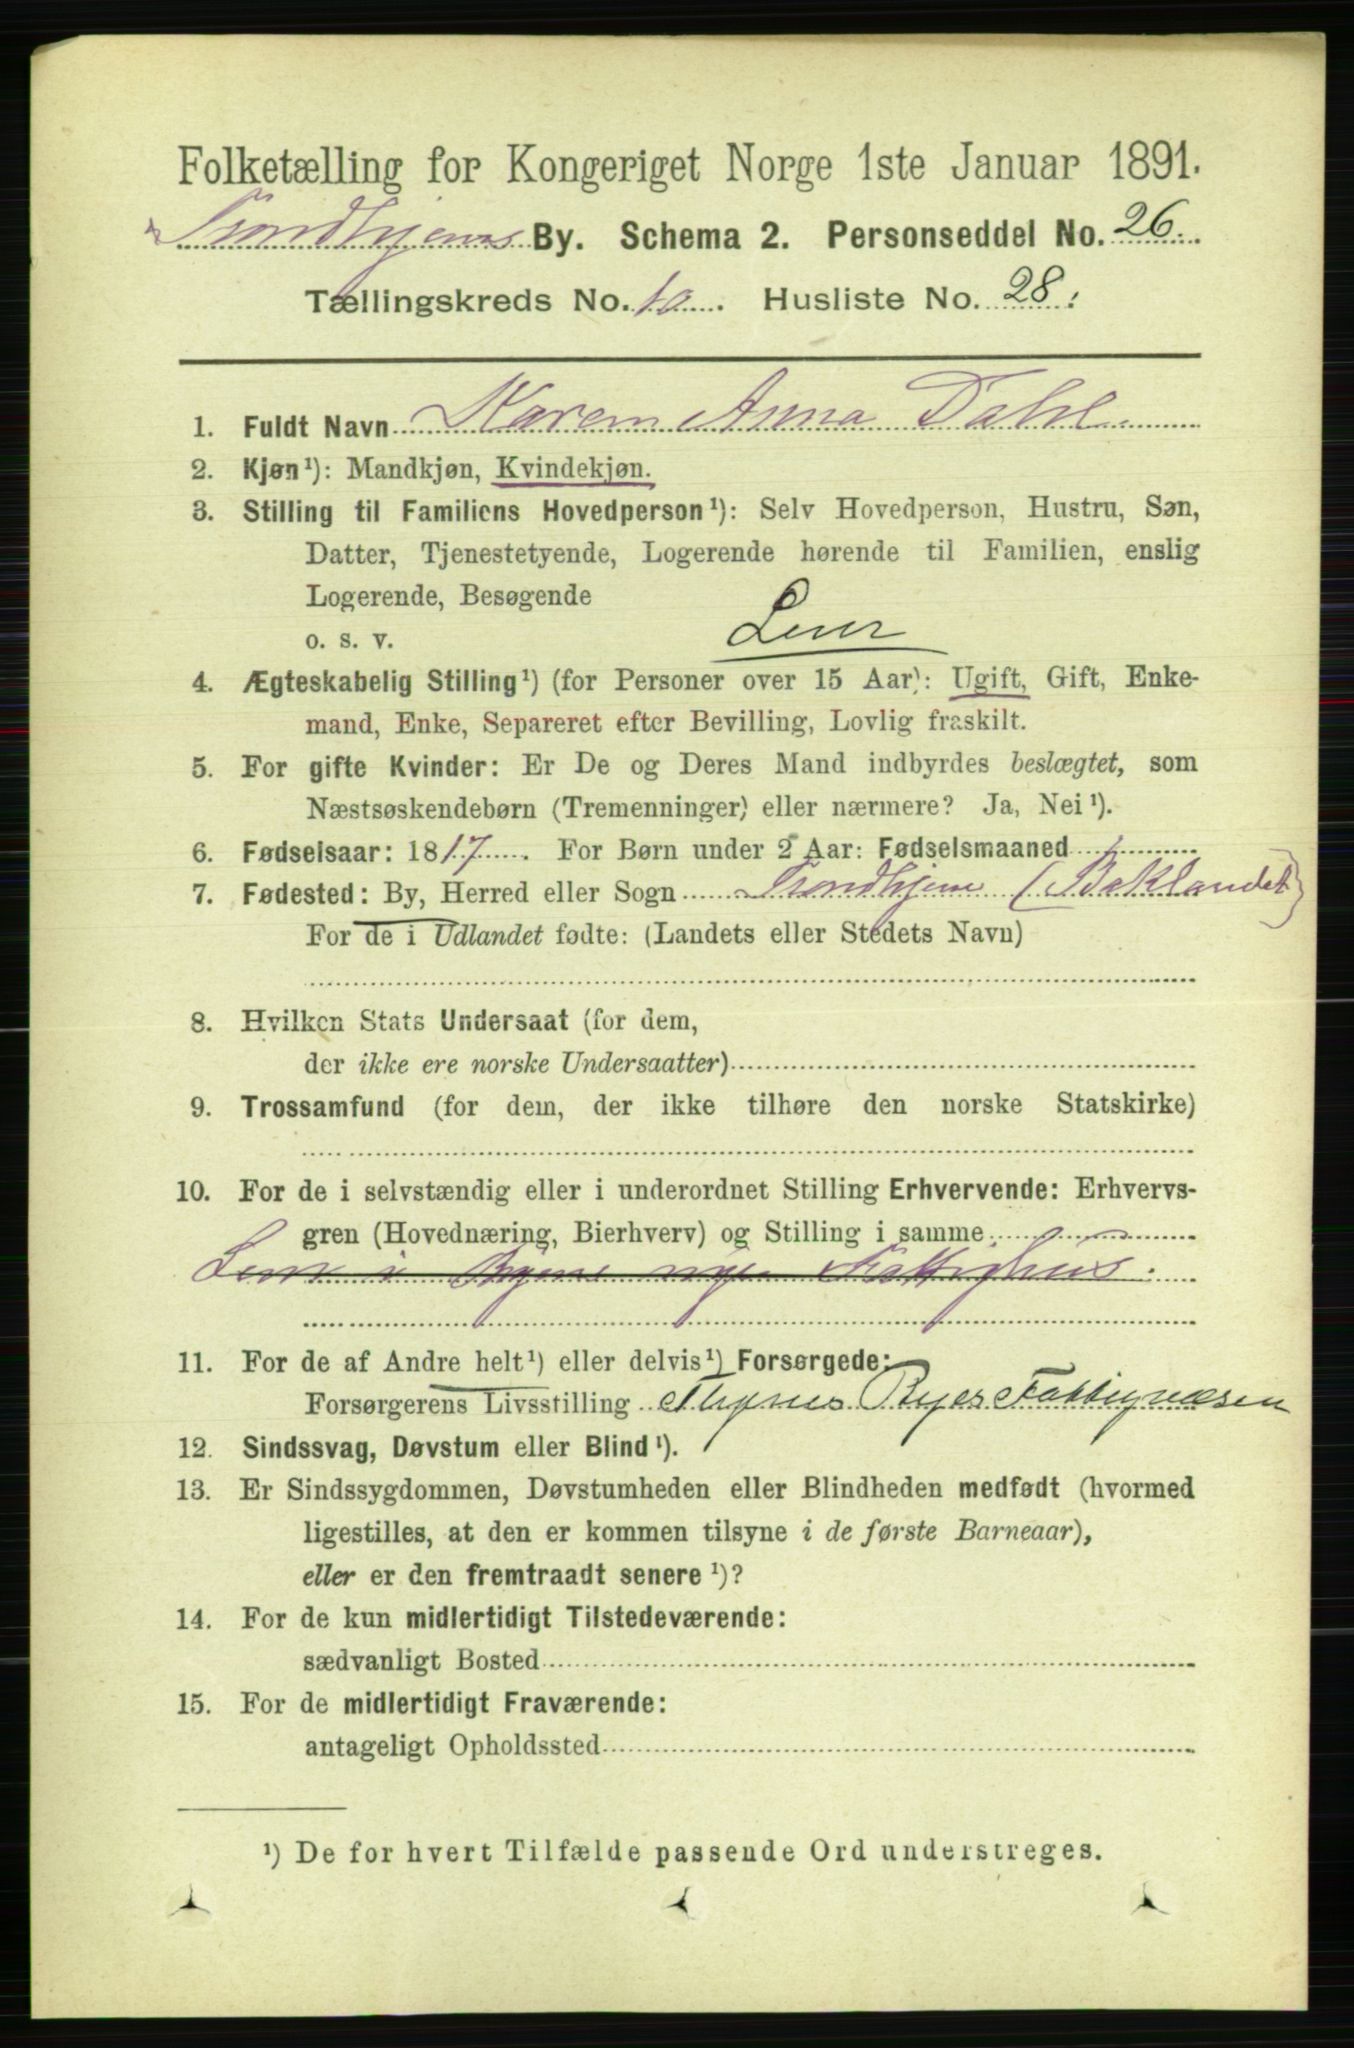 Folketælling for Kongeriget Norge 1ste Januar 1891.
Trondhjems By. Schema 2. Personseddel No. 26.
Tællingskreds No. 10. Husliste No. 28.
1. Fuldt Navn Karen Anna Dahl
2. Kjøn¹): Mandkjøn, Kvindekjøn.
3. Stilling til Familiens Hovedperson¹): Selv Hovedperson, Hustru, Søn,
Datter, Tjenestetyende, Logerende hørende til Familien, enslig
Logerende, Besøgende
o. s. v. Lem
4. Ægteskabelig Stilling¹) (for Personer over 15 Aar): Ugift, Gift, Enke-
mand, Enke, Separeret efter Bevilling, Lovlig fraskilt.
5. For gifte Kvinder: Er De og Deres Mand indbyrdes beslægtet, som
Næstsøskendebørn (Tremenninger) eller nærmere? Ja, Nei¹).
6. Fødselsaar: 1817. For Børn under 2 Aar: Fødselsmaaned
7. Fødested: By, Herred eller Sogn Trondhjem (Baklandet)
For de i Udlandet fødte: (Landets eller Stedets Navn)
8. Hvilken Stats Undersaat (for dem,
der ikke ere norske Undersaatter)
9. Trossamfund (for dem, der ikke tilhøre den norske Statskirke)
10. For de i selvstændig eller i underordnet Stilling Erhvervende: Erhvervs-
gren (Hovednæring, Bierhverv) og Stilling i samme
Lem i Byens nye Fattighus.
11. For de af Andre helt¹) eller delvis¹) Forsørgede:
Forsørgerens Livsstilling Thjems Byes Fattigvæsen
12. Sindssvag, Døvstum eller Blind¹).
13. Er Sindssygdommen, Døvstumheden eller Blindheden medfødt (hvormed
ligestilles, at den er kommen tilsyne i de første Barneaar),
eller er den fremtraadt senere¹)?
14. For de kun midlertidigt Tilstedeværende:
sædvanligt Bosted
15. For de midlertidigt Fraværende:
antageligt Opholdssted
¹) De for hvert Tilfælde passende Ord understreges.